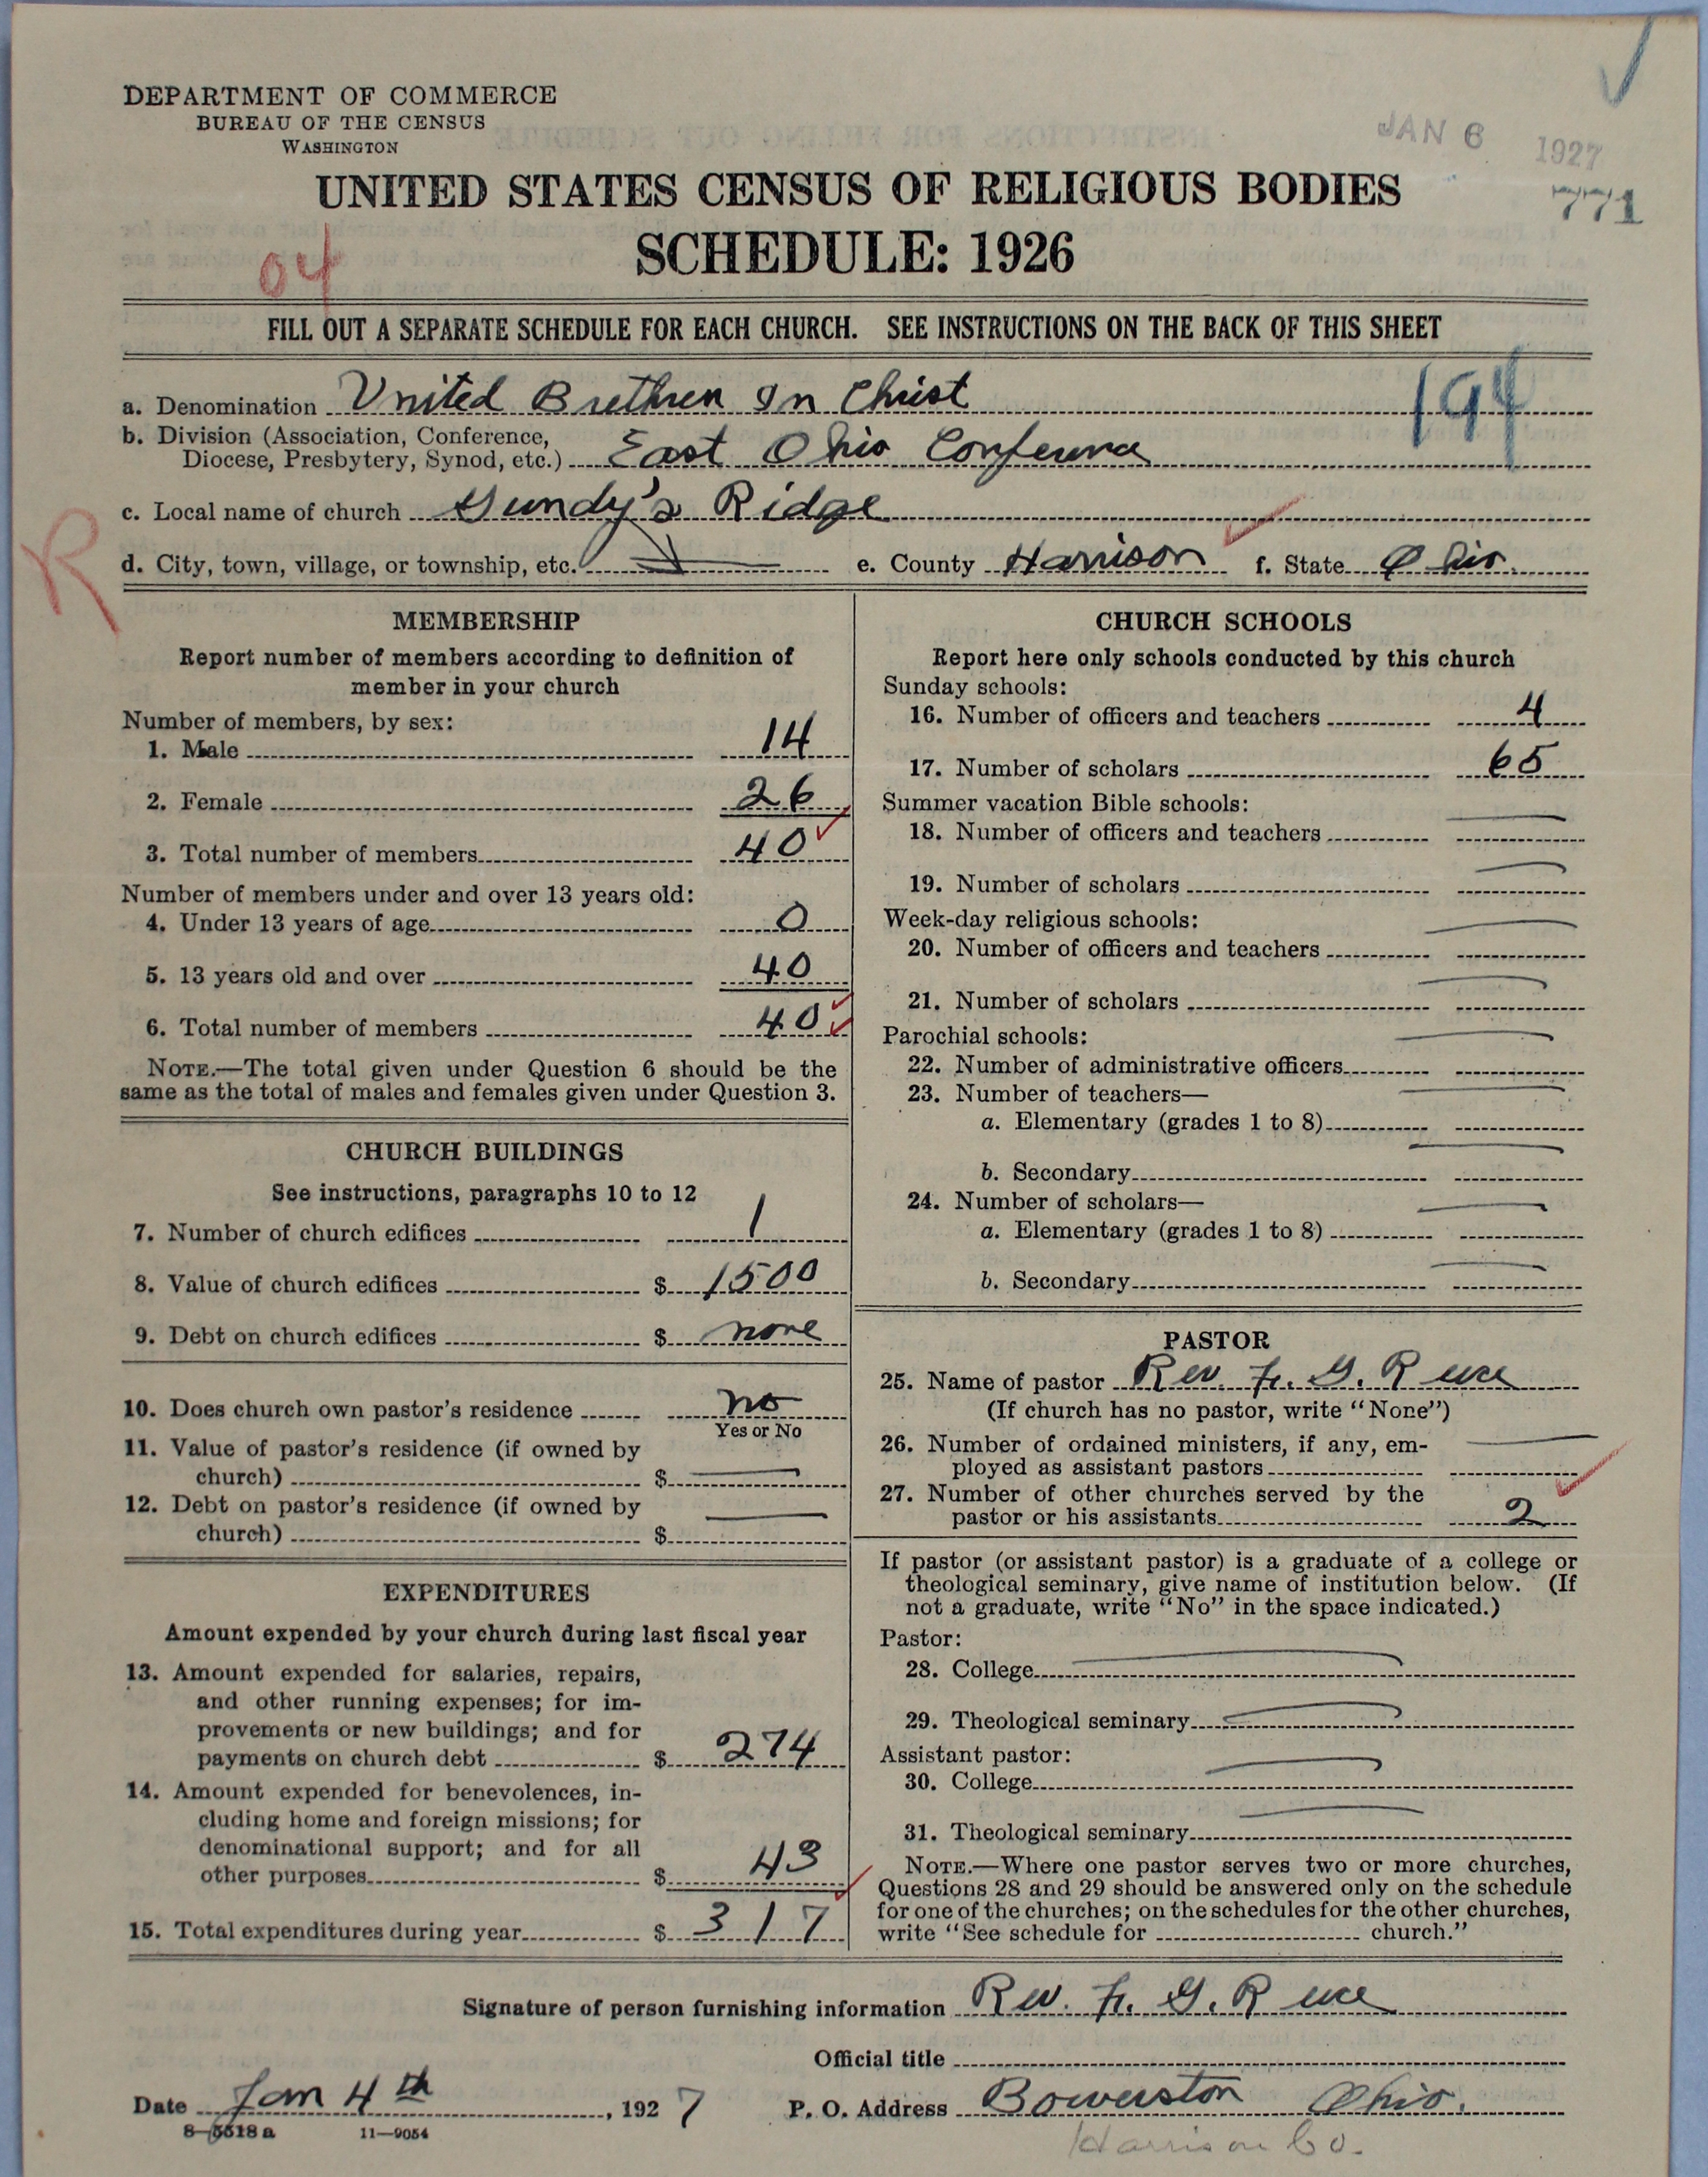 DEPARTMENT OF COMMERCE
BUREAU OF THE CENSUS
WASHINGTON
JAN 6 1927
771
UNITED STATES CENSUS OF RELIGIOUS BODIES
SCHEDULE: 1926
04
FILL OUT A SEPARATE SCHEDULE FOR EACH CHURCH. SEE INSTRUCTIONS ON THE BACK OF THIS SHEET
a. Denomination United Brethren In Christ
194
b. Division (Association, Conference,
Diocese, Presbytery, Synod, etc.) East Ohio Conference
c. Local name of church Gundy's Ridge
R
d. City, town, village, or township, etc. e. County Harrison f. State Ohio
MEMBERSHIP
Report number of members according to definition of
member in your church
Number of members, by sex:
1. Male 14
2. Female 26
3. Total number of members 40
Number of members under and over 13 years old:
4. Under 13 years of age 0
5. 13 years old and over 40
6. Total number of members 40
NOTE.—The total given under Question 6 should be the
same as the total of males and females given under Question 3.
CHURCH BUILDINGS
See instructions, paragraphs 10 to 12
7. Number of church edifices 1
8. Value of church edifices $ 1500
9. Debt on church edifices $ none
10. Does church own pastor's residence no
Yes or No
11. Value of pastor's residence (if owned by
church) $
12. Debt on pastor's residence (if owned by
church) $
EXPENDITURES
Amount expended by your church during last fiscal year
13. Amount expended for salaries, repairs,
and other running expenses; for im-
provements or new buildings; and for
payments on church debt $ 274
14. Amount expended for benevolences, in-
cluding home and foreign missions; for
denominational support; and for all
other purposes $ 43
15. Total expenditures during year $ 317
CHURCH SCHOOLS
Report here only schools conducted by this church
Sunday schools:
16. Number of officers and teachers 4
17. Number of scholars 65
Summer vacation Bible schools:
18. Number of officers and teachers
19. Number of scholars
Week-day religious schools:
20. Number of officers and teachers
21. Number of scholars
Parochial schools:
22. Number of administrative officers
23. Number of teachers—
a. Elementary (grades 1 to 8)
b. Secondary
24. Number of scholars—
a. Elementary (grades 1 to 8)
b. Secondary
PASTOR
25. Name of pastor Rev. G.
(If church has no pastor, write "None")
26. Number of ordained ministers, if any, em-
ployed as assistant pastors
27. Number of other churches served by the
pastor or his assistants 2
If pastor (or assistant pastor) is a graduate of a college or
theological seminary, give name of institution below. (If
not a graduate, write "No" in the space indicated.)
Pastor:
28. College
29. Theological seminary
Assistant pastor:
30. College
31. Theological seminary
NOTE.—Where one pastor serves two or more churches,
Questions 28 and 29 should be answered only on the schedule
for one of the churches; on the schedules for the other churches,
write "See schedule for church."
Signature of person furnishing information Rev. G.
Official title
Date Jan 4th, 1927 P. O. Address Bowerston Ohio.
8-5518a 11-9054
Harrison Co.